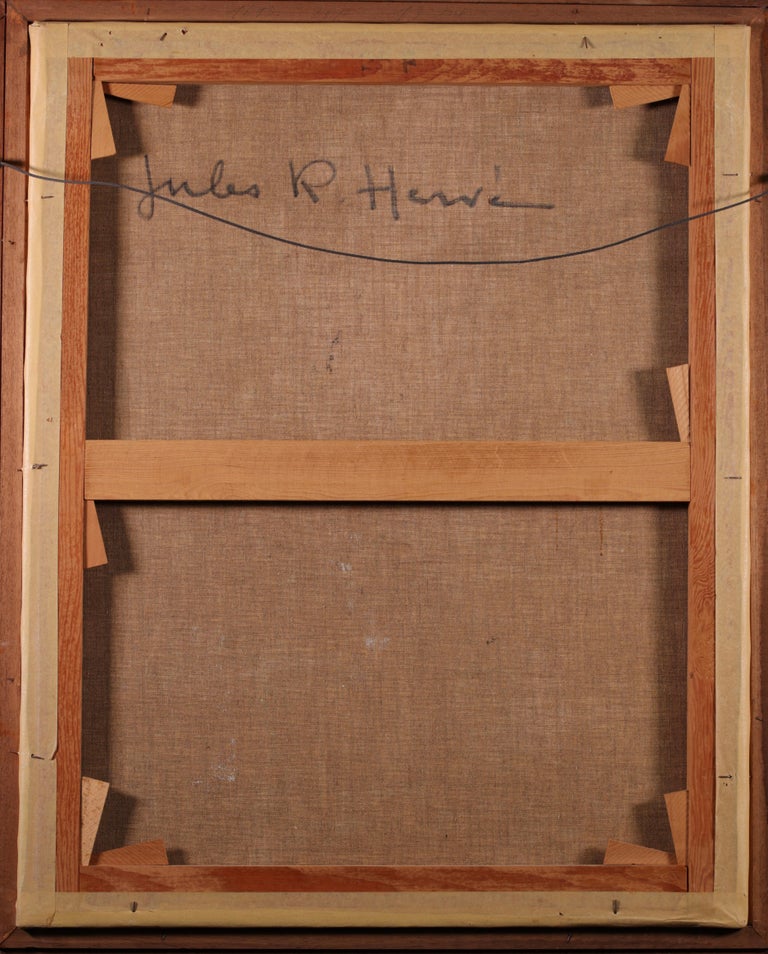 Jules R. Hervé